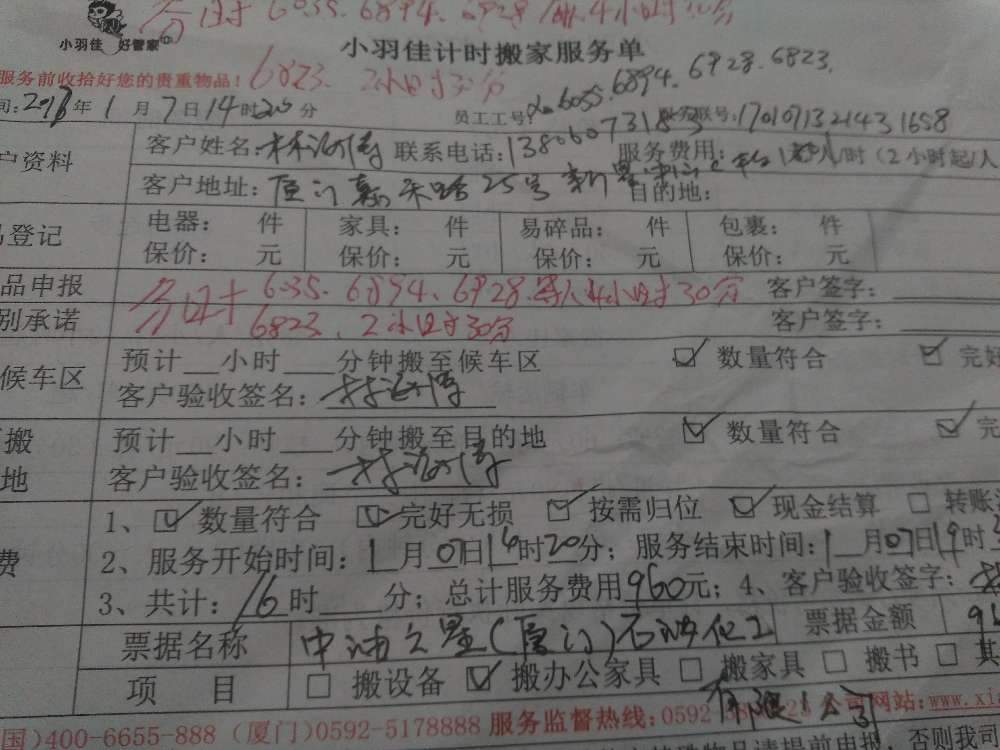 分计 6035. 6894. 6928
小羽佳 好管家
小羽佳计时搬家服务单
服务前收拾好您的贵重物品！ 6823. 2小时30分
6055. 6894. 6928. 6823.
间：年 1 月 7 日 14 时 20 分 员工工号： 服务联号：1701071321431658
户资料 客户姓名： 联系电话： 服务费用： 人/时（2小时起/人
客户地址：厦门嘉禾路25号 目的地：
登记 电器： 件 家具： 件 易碎品： 件 包裹： 件
保价： 元 保价： 元 保价： 元 保价： 元
品申报 6035. 6894. 6928. 4小时30分 客户签字：
别承诺 6823. 2小时30分 客户签字：
候车区 预计 小时 分钟搬至候车区 ☑ 数量符合 ☑ 完好
客户验收签名：
搬 预计 小时 分钟搬至目的地 ☑ 数量符合 ☑ 完
地 客户验收签名：
1、☑ 数量符合 ☑ 完好无损 ☑ 按需归位 ☑ 现金结算 □ 转账
费 2、服务开始时间：1月07日14时20分；服务结束时间：1月07日19时
3、共计：16时 分；总计服务费用960元；4、客户验收签字：
票据名称 中油之星（厦门）石油化工 票据金额 96
有限公司
项 目 □ 搬设备 ☑ 搬办公家具 □ 搬家具 □ 搬书 □ 其
国）400-6655-888（厦门）0592-5178888 服务监督热线：0592 公司网站：www.xi
否则我司